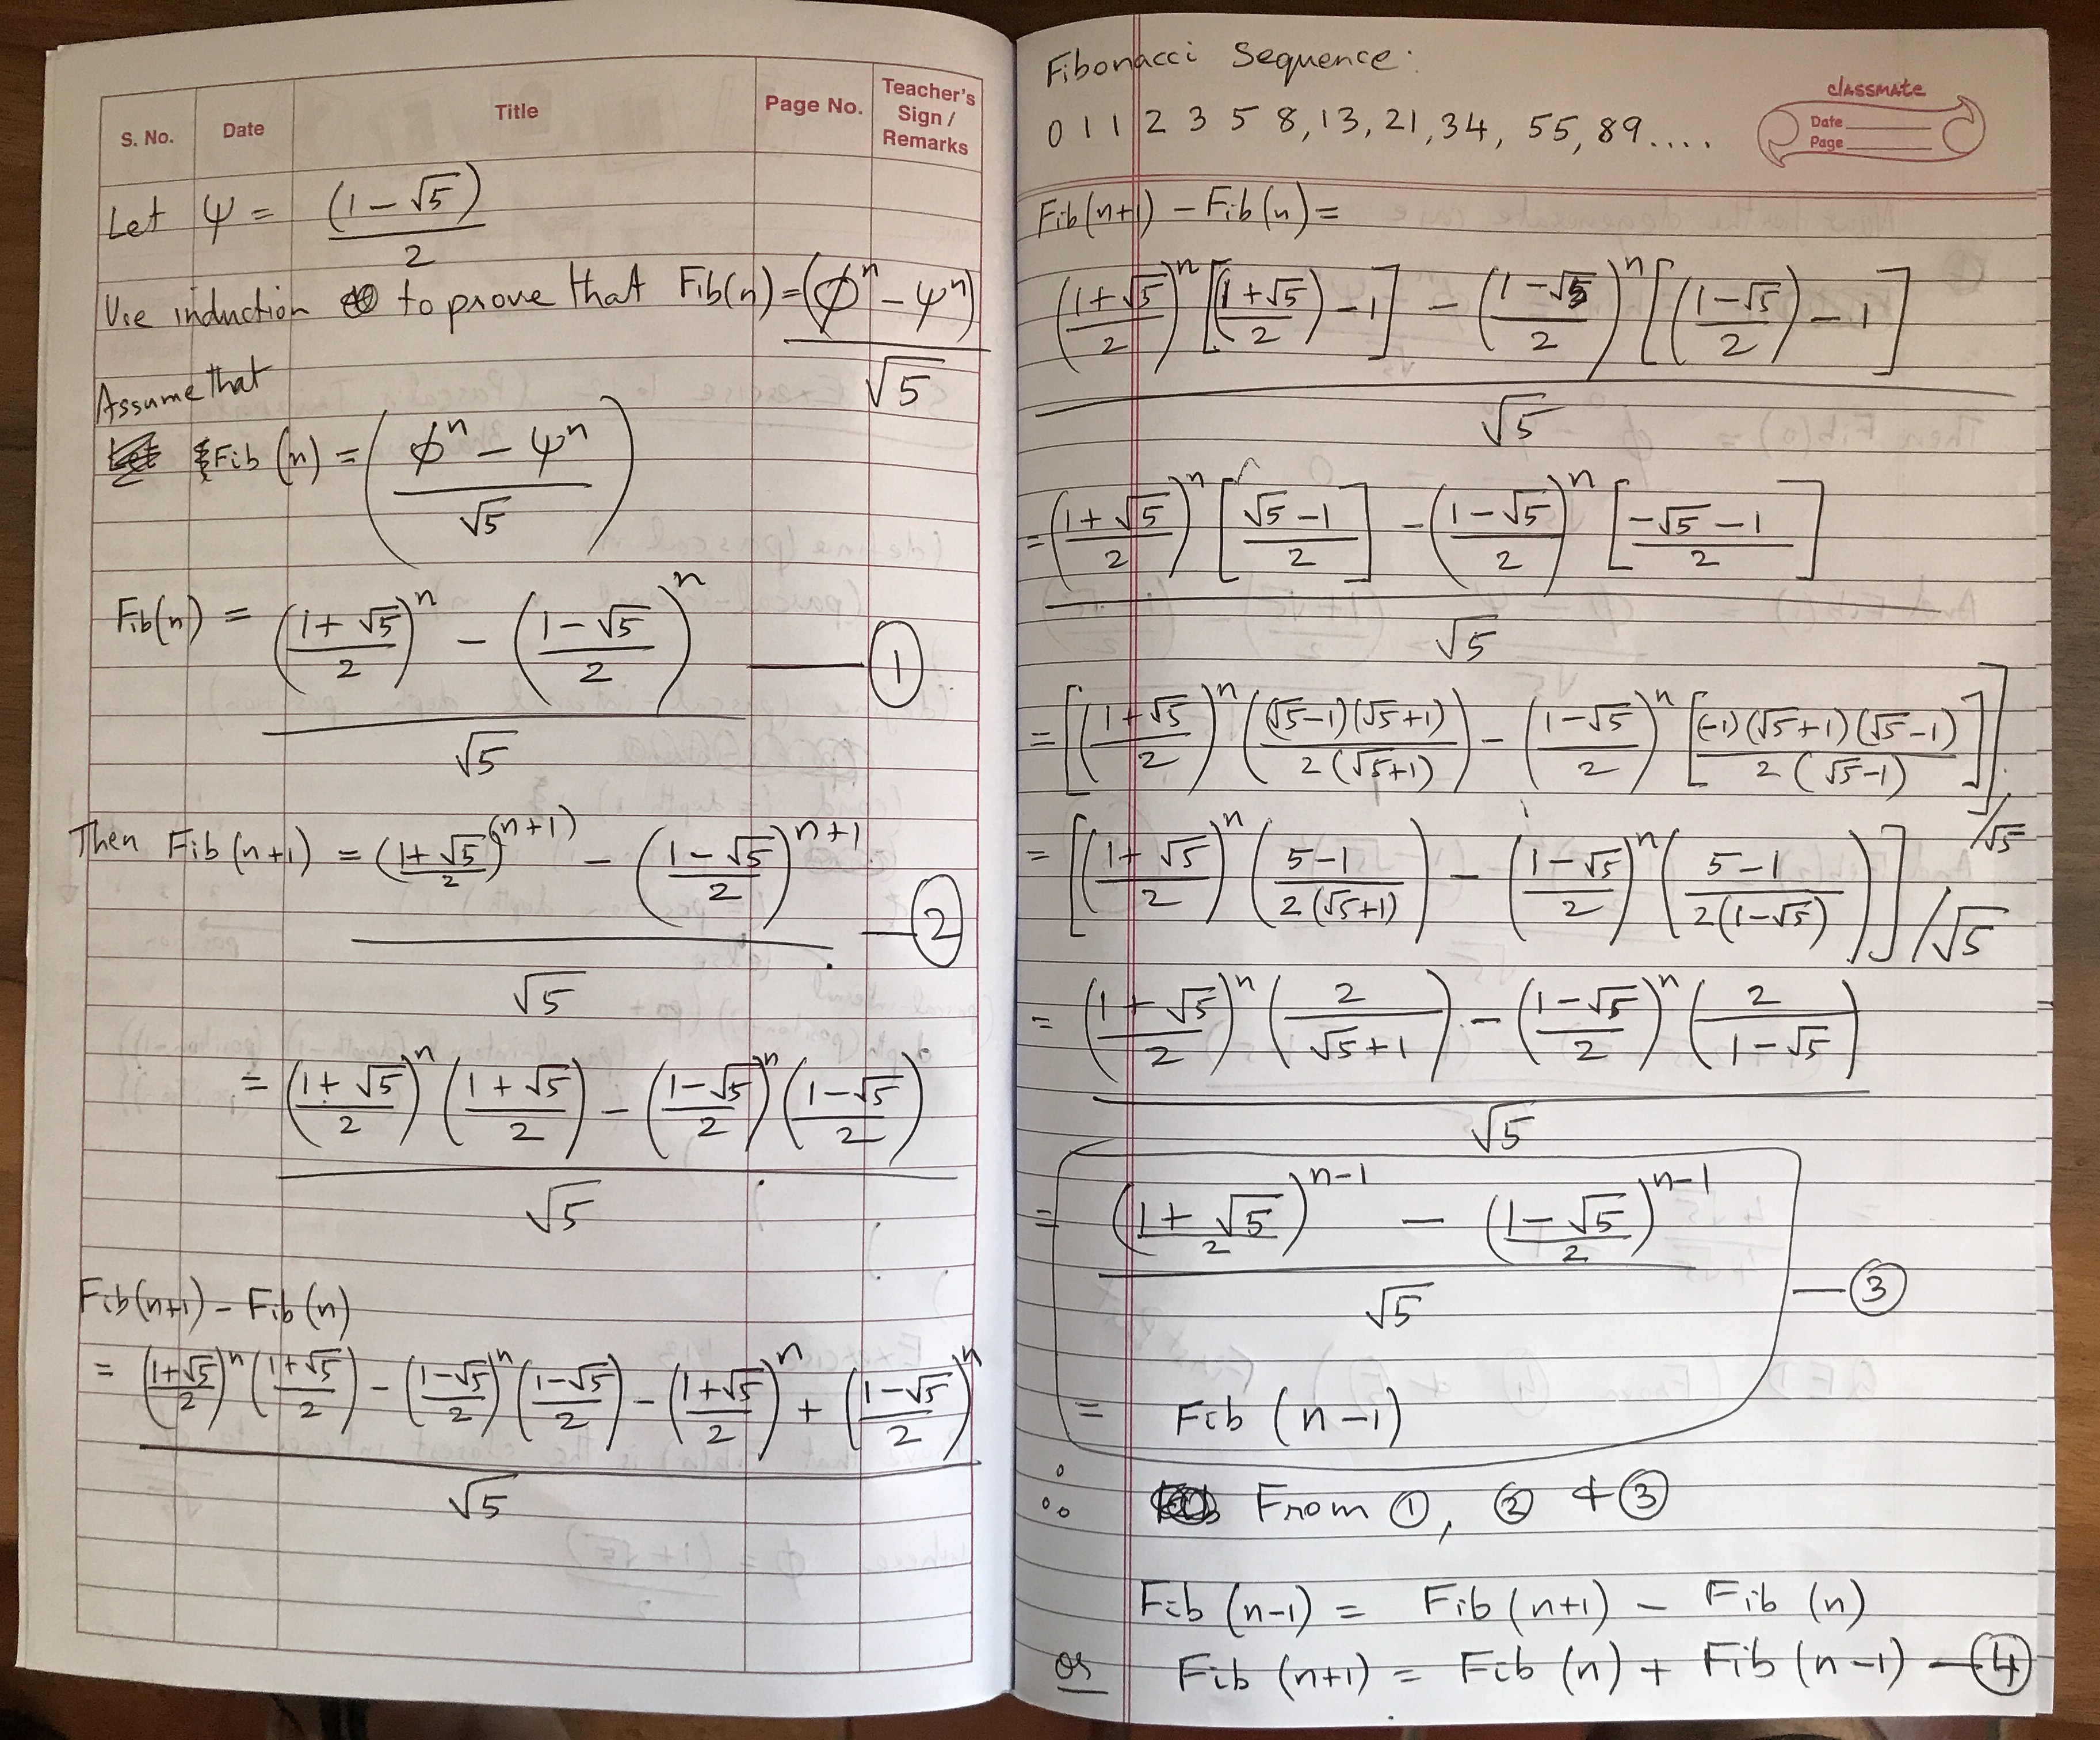 S. No. Date Title Page No. Teacher's Sign / Remarks
Let ψ = (1 − √5) / 2
Use induction to prove that Fib(n) = (φⁿ − ψⁿ) / √5
Assume that
Fib (n) = ( (φⁿ − ψⁿ) / √5 )
Fib(n) = [ ((1 + √5)/2)ⁿ − ((1 − √5)/2)ⁿ ] / √5 —— ①
Then Fib (n+1) = [ ((1 + √5)/2)⁽ⁿ⁺¹⁾ − ((1 − √5)/2)ⁿ⁺¹ ] / √5 — ②
= [ ((1 + √5)/2)ⁿ ((1 + √5)/2) − ((1 − √5)/2)ⁿ ((1 − √5)/2) ] / √5
Fib(n+1) − Fib(n)
= [ ((1 + √5)/2)ⁿ ((1 + √5)/2) − ((1 − √5)/2)ⁿ ((1 − √5)/2) − ((1 + √5)/2)ⁿ + ((1 − √5)/2)ⁿ ] / √5
Fibonacci Sequence:
0 1 1 2 3 5 8, 13, 21, 34, 55, 89....
classmate
Date
Page
Fib(n+1) − Fib(n) =
( ((1 + √5)/2)ⁿ [ ((1 + √5)/2) − 1 ] − ((1 − √5)/2)ⁿ [ ((1 − √5)/2) − 1 ] ) / √5
= ( ((1 + √5)/2)ⁿ [ (√5 − 1)/2 ] − ((1 − √5)/2)ⁿ [ (−√5 − 1)/2 ] ) / √5
= [ ((1 + √5)/2)ⁿ ( (√5−1)(√5+1) / 2(√5+1) ) − ((1 − √5)/2)ⁿ [ (−1)(√5+1)(√5−1) / 2(√5−1) ] ] / √5
= [ ((1 + √5)/2)ⁿ ( 5−1 / 2(√5+1) ) − ((1 − √5)/2)ⁿ ( 5−1 / 2(1−√5) ) ] / √5
= [ ((1 + √5)/2)ⁿ ( 2 / (√5+1) ) − ((1 − √5)/2)ⁿ ( 2 / (1−√5) ) ] / √5
= [ ((1 + √5)/2)ⁿ⁻¹ − ((1 − √5)/2)ⁿ⁻¹ ] / √5 — ③
= Fib (n−1)
∴ From ①, ② & ③
Fib (n−1) = Fib (n+1) − Fib (n)
or Fib (n+1) = Fib (n) + Fib (n−1) — ④